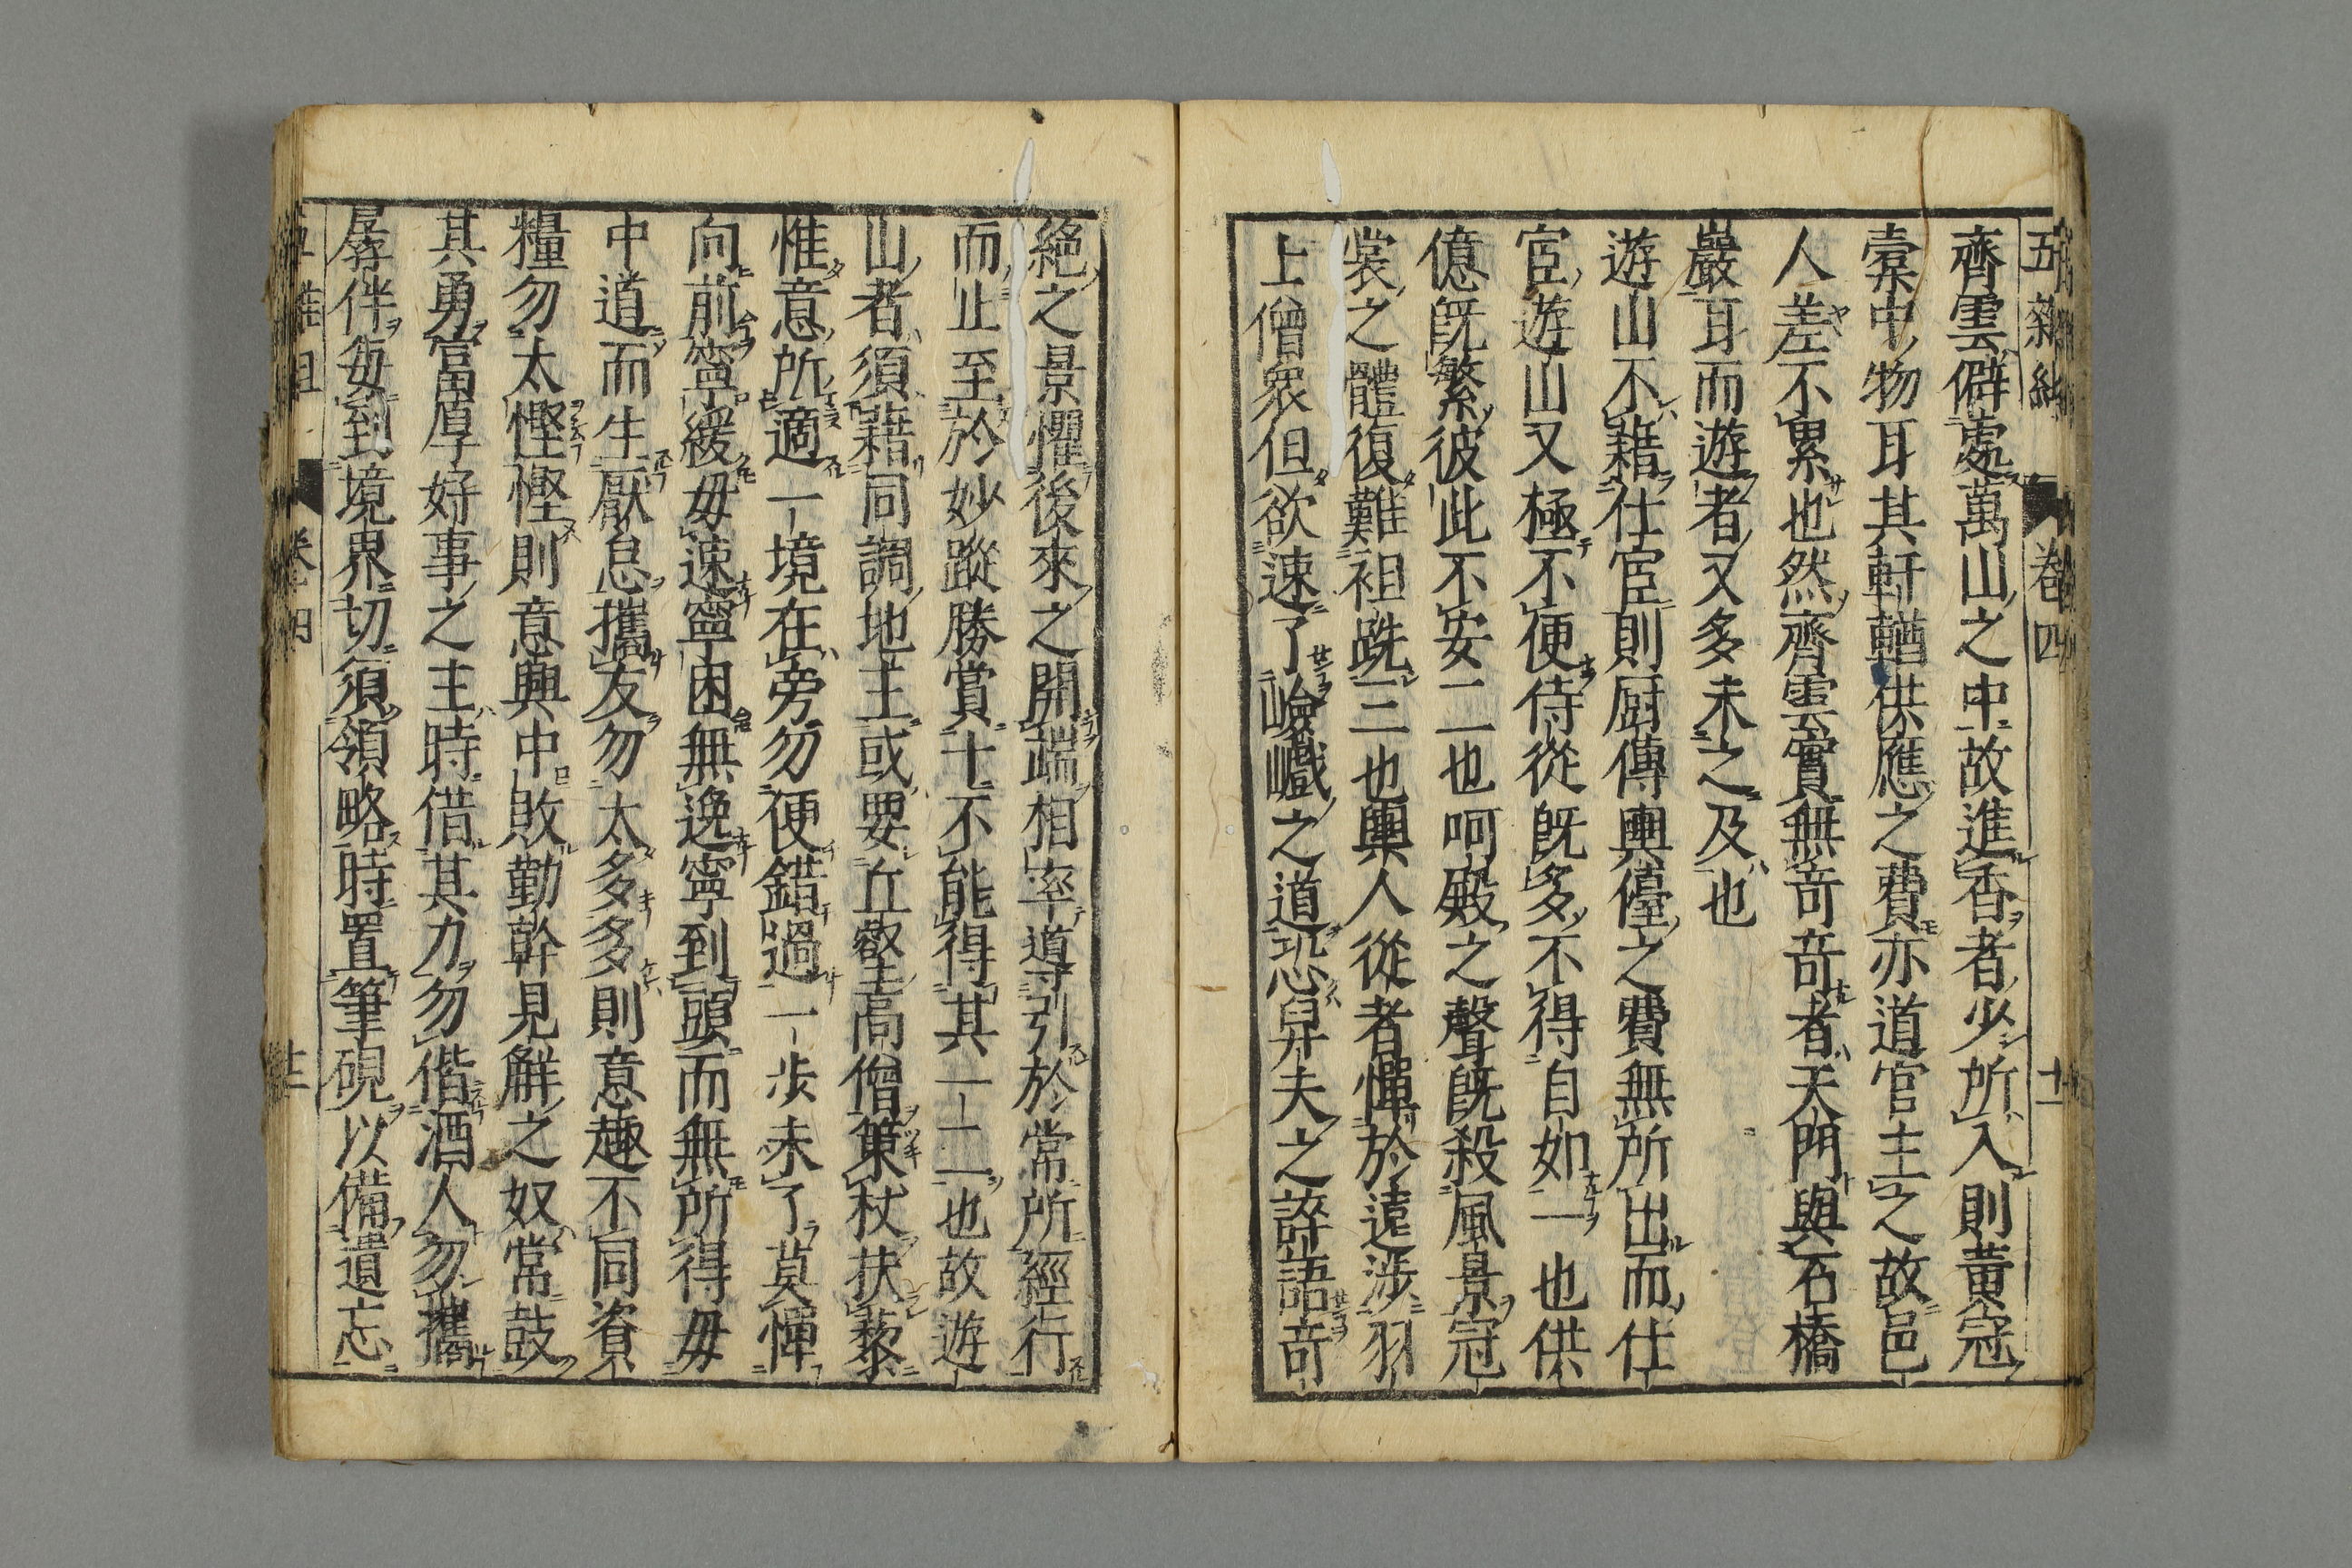 五雜組 卷四 十二
齊雲僻處萬山之中故進香者少所入則黃冠
橐中物耳其軒輶供應之費亦道官主之故邑
人差不累也然齊雲實無奇奇者天門與石橋
巖耳而遊者又多未之及也
遊山不藉仕宦則厨傳輿儓之費無所出而仕
宦遊山又極不便侍從既多不得自如一也供
億既繁彼此不安二也呵殿之聲既殺風景冠
裳之體復難袒跣三也輿人從者憚於遠涉羽
士僧眾但欲速了嶮巇之道恐舁夫之誶語奇
絶之景懼後來之開端相率導引於常所經行
而止至於妙蹤勝賞十不能得其一二也故遊
山者須藉同調地主或要丘壑高僧策杖扶藜
惟意所適一境在旁勿便錯過一步未了莫憚
向前寧緩毋速寧困無逸寧到頭而無所得毋
中道而生厭怠攜友勿太多多則意趣不同資
糧勿太慳慳則意興中敗勤幹見解之奴常鼓
其勇富厚好事之主時借其力勿偕酒人勿攜
孱伴每到境界切須領略時置筆硯以備遺忘
五雜組 卷四 十二